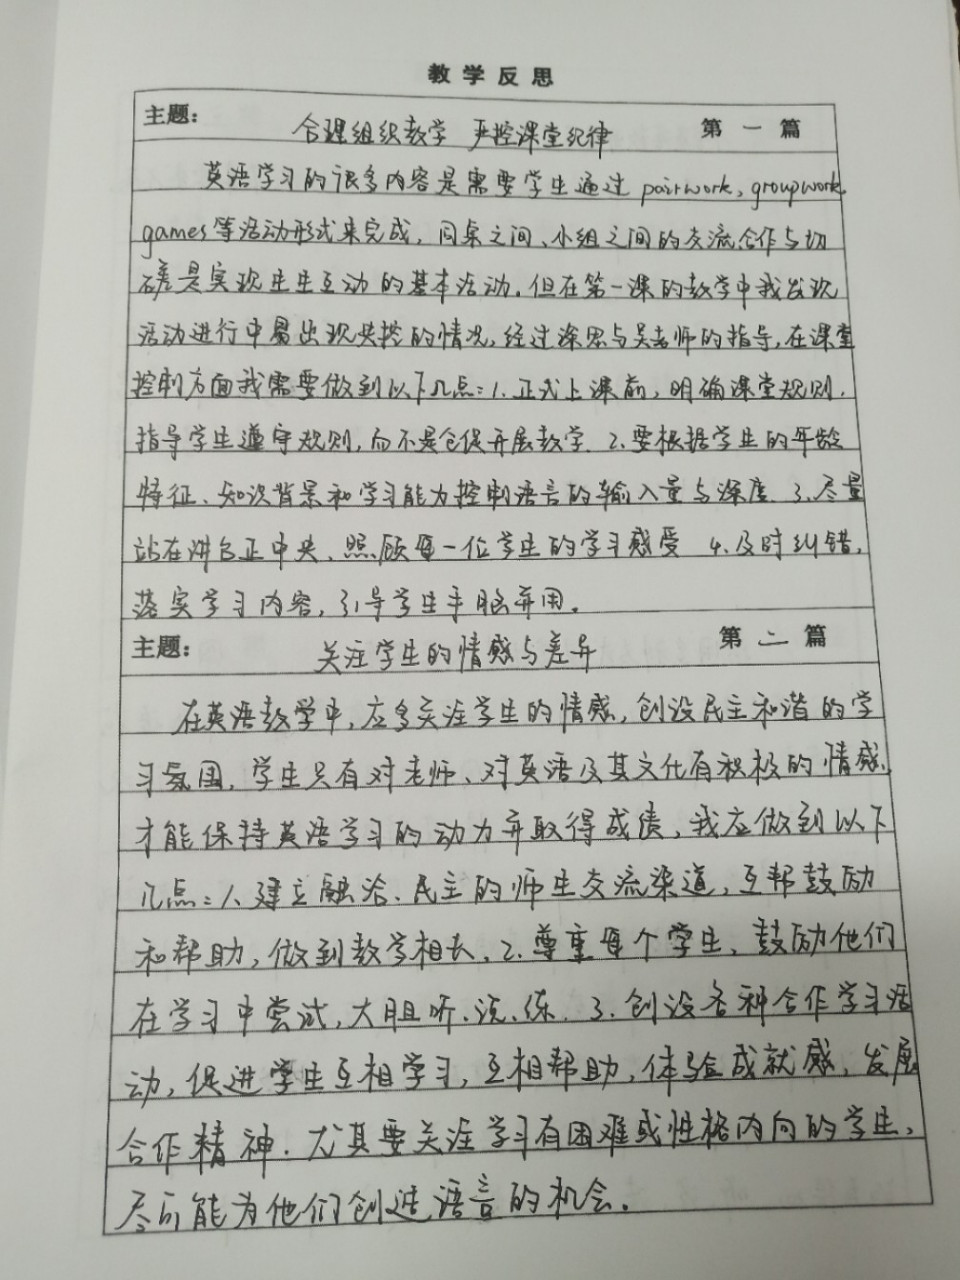 教学反思
主题: 合理组织教学 严控课堂纪律 第一篇
英语学习的很多内容是需要学生通过pairwork, groupwork,
games等活动形式来完成, 同桌之间、小组之间的交流合作与切
磋是实现生生互动的基本活动. 但在第一课的教学中我发现
活动进行中易出现失控的情况, 经过深思与吴老师的指导, 在课堂
控制方面我需要做到以下几点: 1. 正式上课前, 明确课堂规则,
指导学生遵守规则, 而不是仓促开展教学. 2. 要根据学生的年龄
特征、知识背景和学习能力控制语言的输入量与深度. 3. 尽量
站在讲台正中央、照顾每一位学生的学习感受 4. 及时纠错,
落实学习内容, 引导学生手脑并用。
主题: 关注学生的情感与差异 第二篇
在英语教学中, 应多关注学生的情感, 创设民主和谐的学
习氛围, 学生只有对老师、对英语及其文化有积极的情感,
才能保持英语学习的动力并取得成绩, 我应做到以下
几点: 1. 建立融洽、民主的师生交流渠道, 互帮鼓励
和帮助, 做到教学相长. 2. 尊重每个学生, 鼓励他们
在学习中尝试, 大胆听、说、练. 3. 创设各种合作学习活
动, 促进学生互相学习, 互相帮助, 体验成就感, 发展
合作精神. 尤其要关注学习有困难或性格内向的学生,
尽可能为他们创造语言的机会.